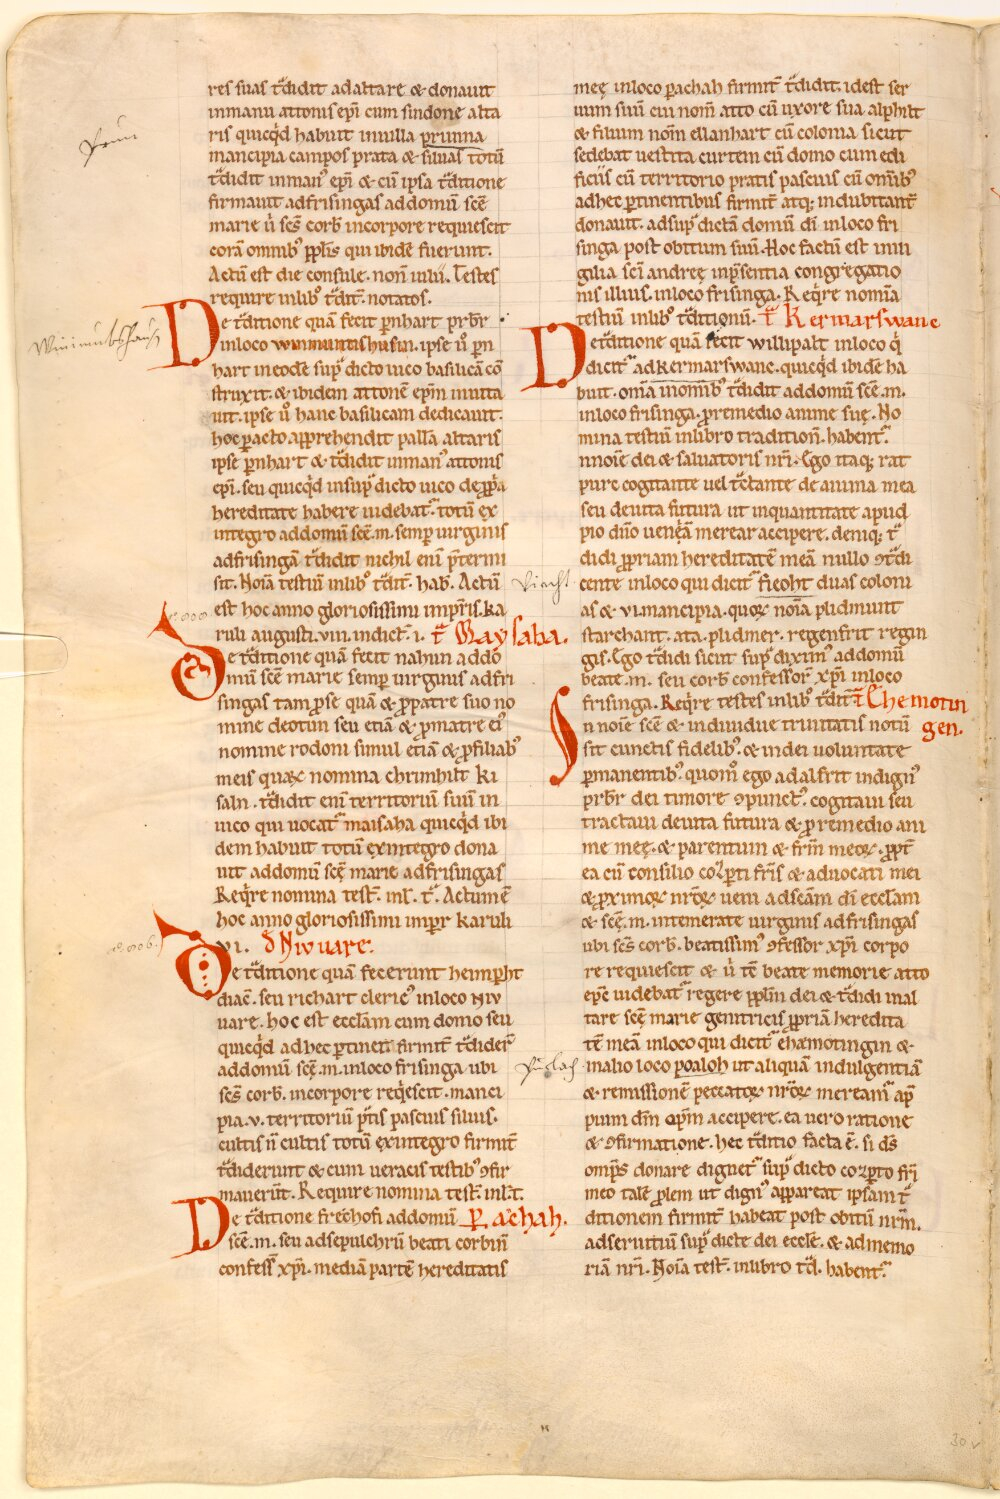 res suas t͛didit ad altare & donauit
in manu attonis ep̄i cum sindone alta
ris quicq̇d habuit in uilla prunna
mancipia campos prata & siluas totū
t͛didit in man᾿ ep̄i & cū ipsa t͛ditione
firmauit ad frisingas ad domū sc̄ę
marie u̇ sc̄s corb̄ in corpore requiescit
corā omnib᾿ ꝓpl̄is qui ibidē fuerunt.
Actū est die consule. non̄ iulii. Testes
require in lib᾿ t͛dit̄. notatos.
De t͛ditione quā fecit ꝑnhart p̄rb̄r
in loco winimuntishusin. ipse u᾿ ꝑn
hart in eodē sup͛dicto uico basilicā cō
struxit. & ibidem attonē ep̄m inuita
uit. ipse u᾿ hanc basilicam dedicauit.
hoc ꝑacto apprehendit pallā altaris
ipse ꝑnhart & t͛didit in man᾿ attonis
ep̄i. seu quicq̇d in sup͛dicto uico de ꝓp̄a
hereditate habere uidebat᾿. totū ex
integro ad domū sc̄ę. m. semꝑ uirginis
ad frisingā t͛didit nichil enī p̄termi
sit. Noīa testiū in lib᾿ t͛dit̄. hab̄. Actū
est hoc anno gloriosissimi imp̄r̄is. ka
ruli augusti. viii. indict̄. i. t͛ Maysaha.
De t͛ditione quā fecit nahun ad do
mū sc̄ę marie semꝑ uirginis ad fri
singas tam ꝓ se quā & ꝓ patre suo no
mine deotun seu etiā & ꝓ matre ei᾿
nomine rodoni simul etiā & ꝓ filiab᾿
meis quaꝝ nomina chrimhilt ki
saln. t͛didit enī territoriū suū in
uico qui uocat᾿ maisaha quicq̇d ibi
dem habuit totū ex integro dona
uit ad domū sc̄ę marie ad frisingas
Req̇re nomina test̄. in l̄. t͛. Actum ē
hoc anno gloriosissimi imp̄r karuli
vi. đ Niuuare.
De t͛ditione quā fecerunt heimꝑht
diac̄. seu richart cleric᾿ in loco niu
uare. hoc est eccl̄am cum domo seu
quicq̇d ad hec ꝑtinet firmit̄ t͛dider᾿
ad domū sc̄ę. m. in loco frisinga ubi
sc̄s corb̄. in corpore req̇escit. manci
pia. v. territoriū p̄tis pascuis siluis.
cultis īi cultis totū ex integro firmit̄
t͛diderunt & cum ueracis testib᾿ ꝯfir
mauer̄t. Require nomina test̄ in l̄. t.
De t͛ditione frechofi ad domū Pachah.
sc̄ę. m. seu ad sepulchrū beati corbin̄
confess̄ xp̄i. mediā partē hereditatis
meę in loco pachah firmit̄ t͛didit. id est ser
uum suū cui nom̄ atto cū uxore sua alphilt
& filium nom̄ ellanhart cū colonia sicut
sedebat uestita curtem cū domo cum edi
ficiis cū territorio pratis pascuis cū om̄ib᾿
ad hec ꝑtinentibus firmit̄ atq; indubitant̄
donauit. ad sup͛dictā domū dī in loco fri
singa post obitum suū. Hoc factū est in ui
gilia sc̄i andreę in p̄sentia congregatio
nis illius. in loco frisinga. Req̇re nomīa
testiū in lib᾿ t͛ditionū. t͛ Kermarswanc
De t͛ditione quā fecit willipalt in loco q̇
dicit᾿ ad kermarswanc. quicq̇d ibidē ha
buit. om̄ia in om̄ib᾿ t͛didit ad domū sc̄ę. m.
in loco frisinga. ꝓ remedio anime suę. No
mina testiū in libro tradition̄. habent᾿.
In noīe dei & saluatoris nr̄i. Ego itaq; rat
pure cogitante uel t͛ctante de anima mea
seu de uita futura ut in quantitate apud
pio dn̄o ueniā merear accipere. deniq; t͛
didi ꝓpriam hereditatē meā nullo ꝯt͛di
cente in loco qui dicit᾿ fieoht duas coloni
as & vi. mancipia. quoꝝ noīa plidmunt
starchant. ata. plidmer. regenfrit regin
gis. Ego t͛didi sicut sup͛ dixim᾿ ad domū
beate. m. seu corb̄ confessor̄ xp̄i in loco
frisinga. Req̇re testes in lib᾿ t͛dit̄ t͛ Chemotin
gen.
In noīe sc̄ę & indiuidue trinitatis notū
sit cunctis fidelib᾿. & in dei uoluntate
ꝑmanentib᾿. quom᾿ ego adalfrit indign᾿
p̄rb̄r dei timore ꝯpunct᾿. cogitaui seu
tractaui de uita futura & ꝓ remedio ani
me meę. & parentum & fr̄m meoꝝ. ꝓpt̄
ea cū consilio coꝛꝑti fr̄is & aduocati mei
& ꝓximoꝝ nr̄oꝝ ueni ad sc̄am dī eccl̄am
& sc̄ę. m. intemerate uirginis ad frisingas
ubi sc̄s corb̄. beatissim᾿ ꝯfessor xp̄i corpo
re requiescit & u̇ tē beate memorie atto
ep̄c uidebat᾿ regere ꝓpl̄m dei & t͛didi in al
tare sc̄ę marie genitricis ꝓpriā heredita
tē meā in loco qui dicit᾿ chæmotingin &
in alio loco poaloh ut aliquā indulgentiā
& remissionē peccatoꝝ nr̄oꝝ mereant᾿ ap̄
pium dn̄m q̄m accipere. ea uero ratione
& ꝯfirmatione. hec t͛ditio facta ē. si d̄s
omp̄s donare dignet᾿ sup͛dicto coꝛꝑto fr̄i
meo talē ꝓlem ut dign᾿ appareat ipsam t͛
ditionem firmit̄ habeat post obitū nr̄m.
ad seruitiū sup͛dicte dei eccl̄e. & ad memo
riā nr̄i. Noīa test̄. in libro t͛d. habent᾿.
30v